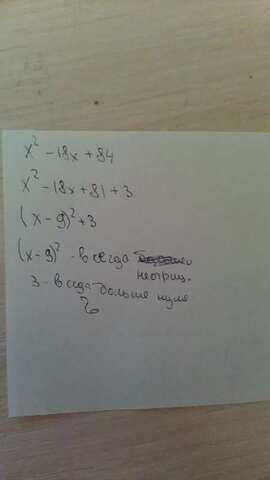 x² - 18x + 84
x² - 18x + 81 + 3
(x - 9)² + 3
(x - 9)² - всегда
неотриц.
3 - всегда больше нуля